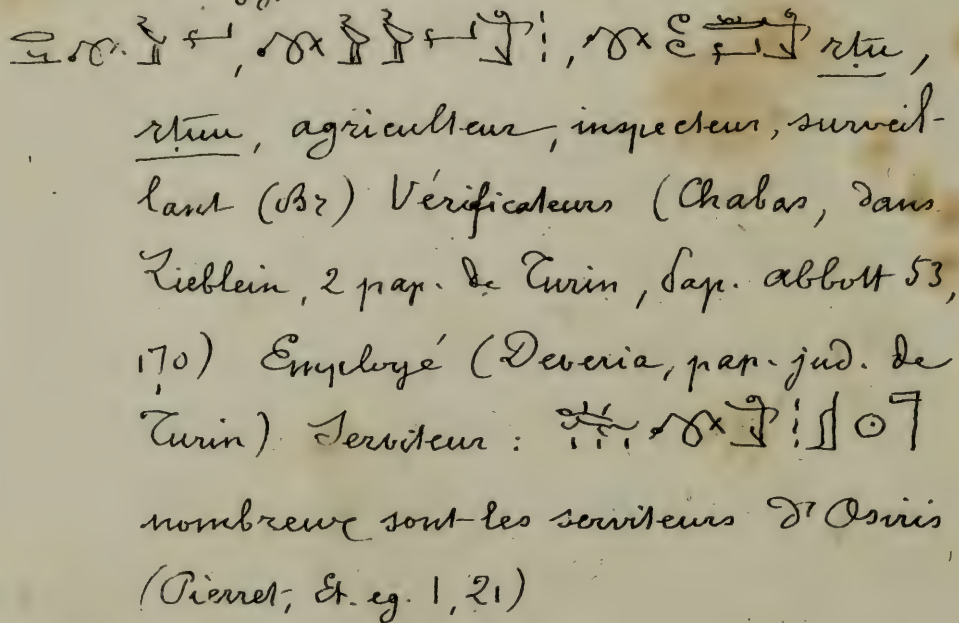 rtu,
rtuu, agriculteur, inspecteur, surveil-
lant (Br) Vérificateurs (Chabas, dans
Lieblein, 2 pap. de Turin, d'ap. abbott 53,
170) Employé (Deveria, pap. jud. de
Turin) Serviteur :
nombreux sont les serviteurs d'Osiris
(Pierret, Et. eg. 1, 21)